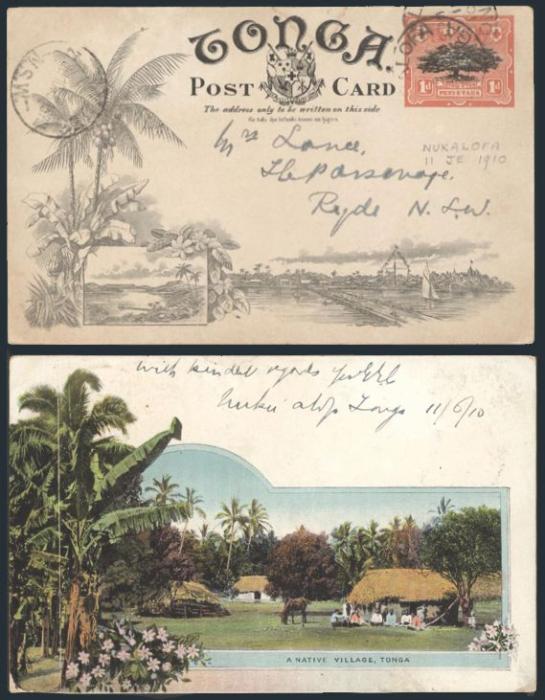 TONGA.
POST CARD
The address only to be written on this side
1d 1d
N.S.W
Mrs Lance,
The Parsonage,
Ryde N.S.W.
NUKALOFA
11 JE 1910
with kindest regards
Nuku'alofa Tonga 11/6/10
A NATIVE VILLAGE, TONGA